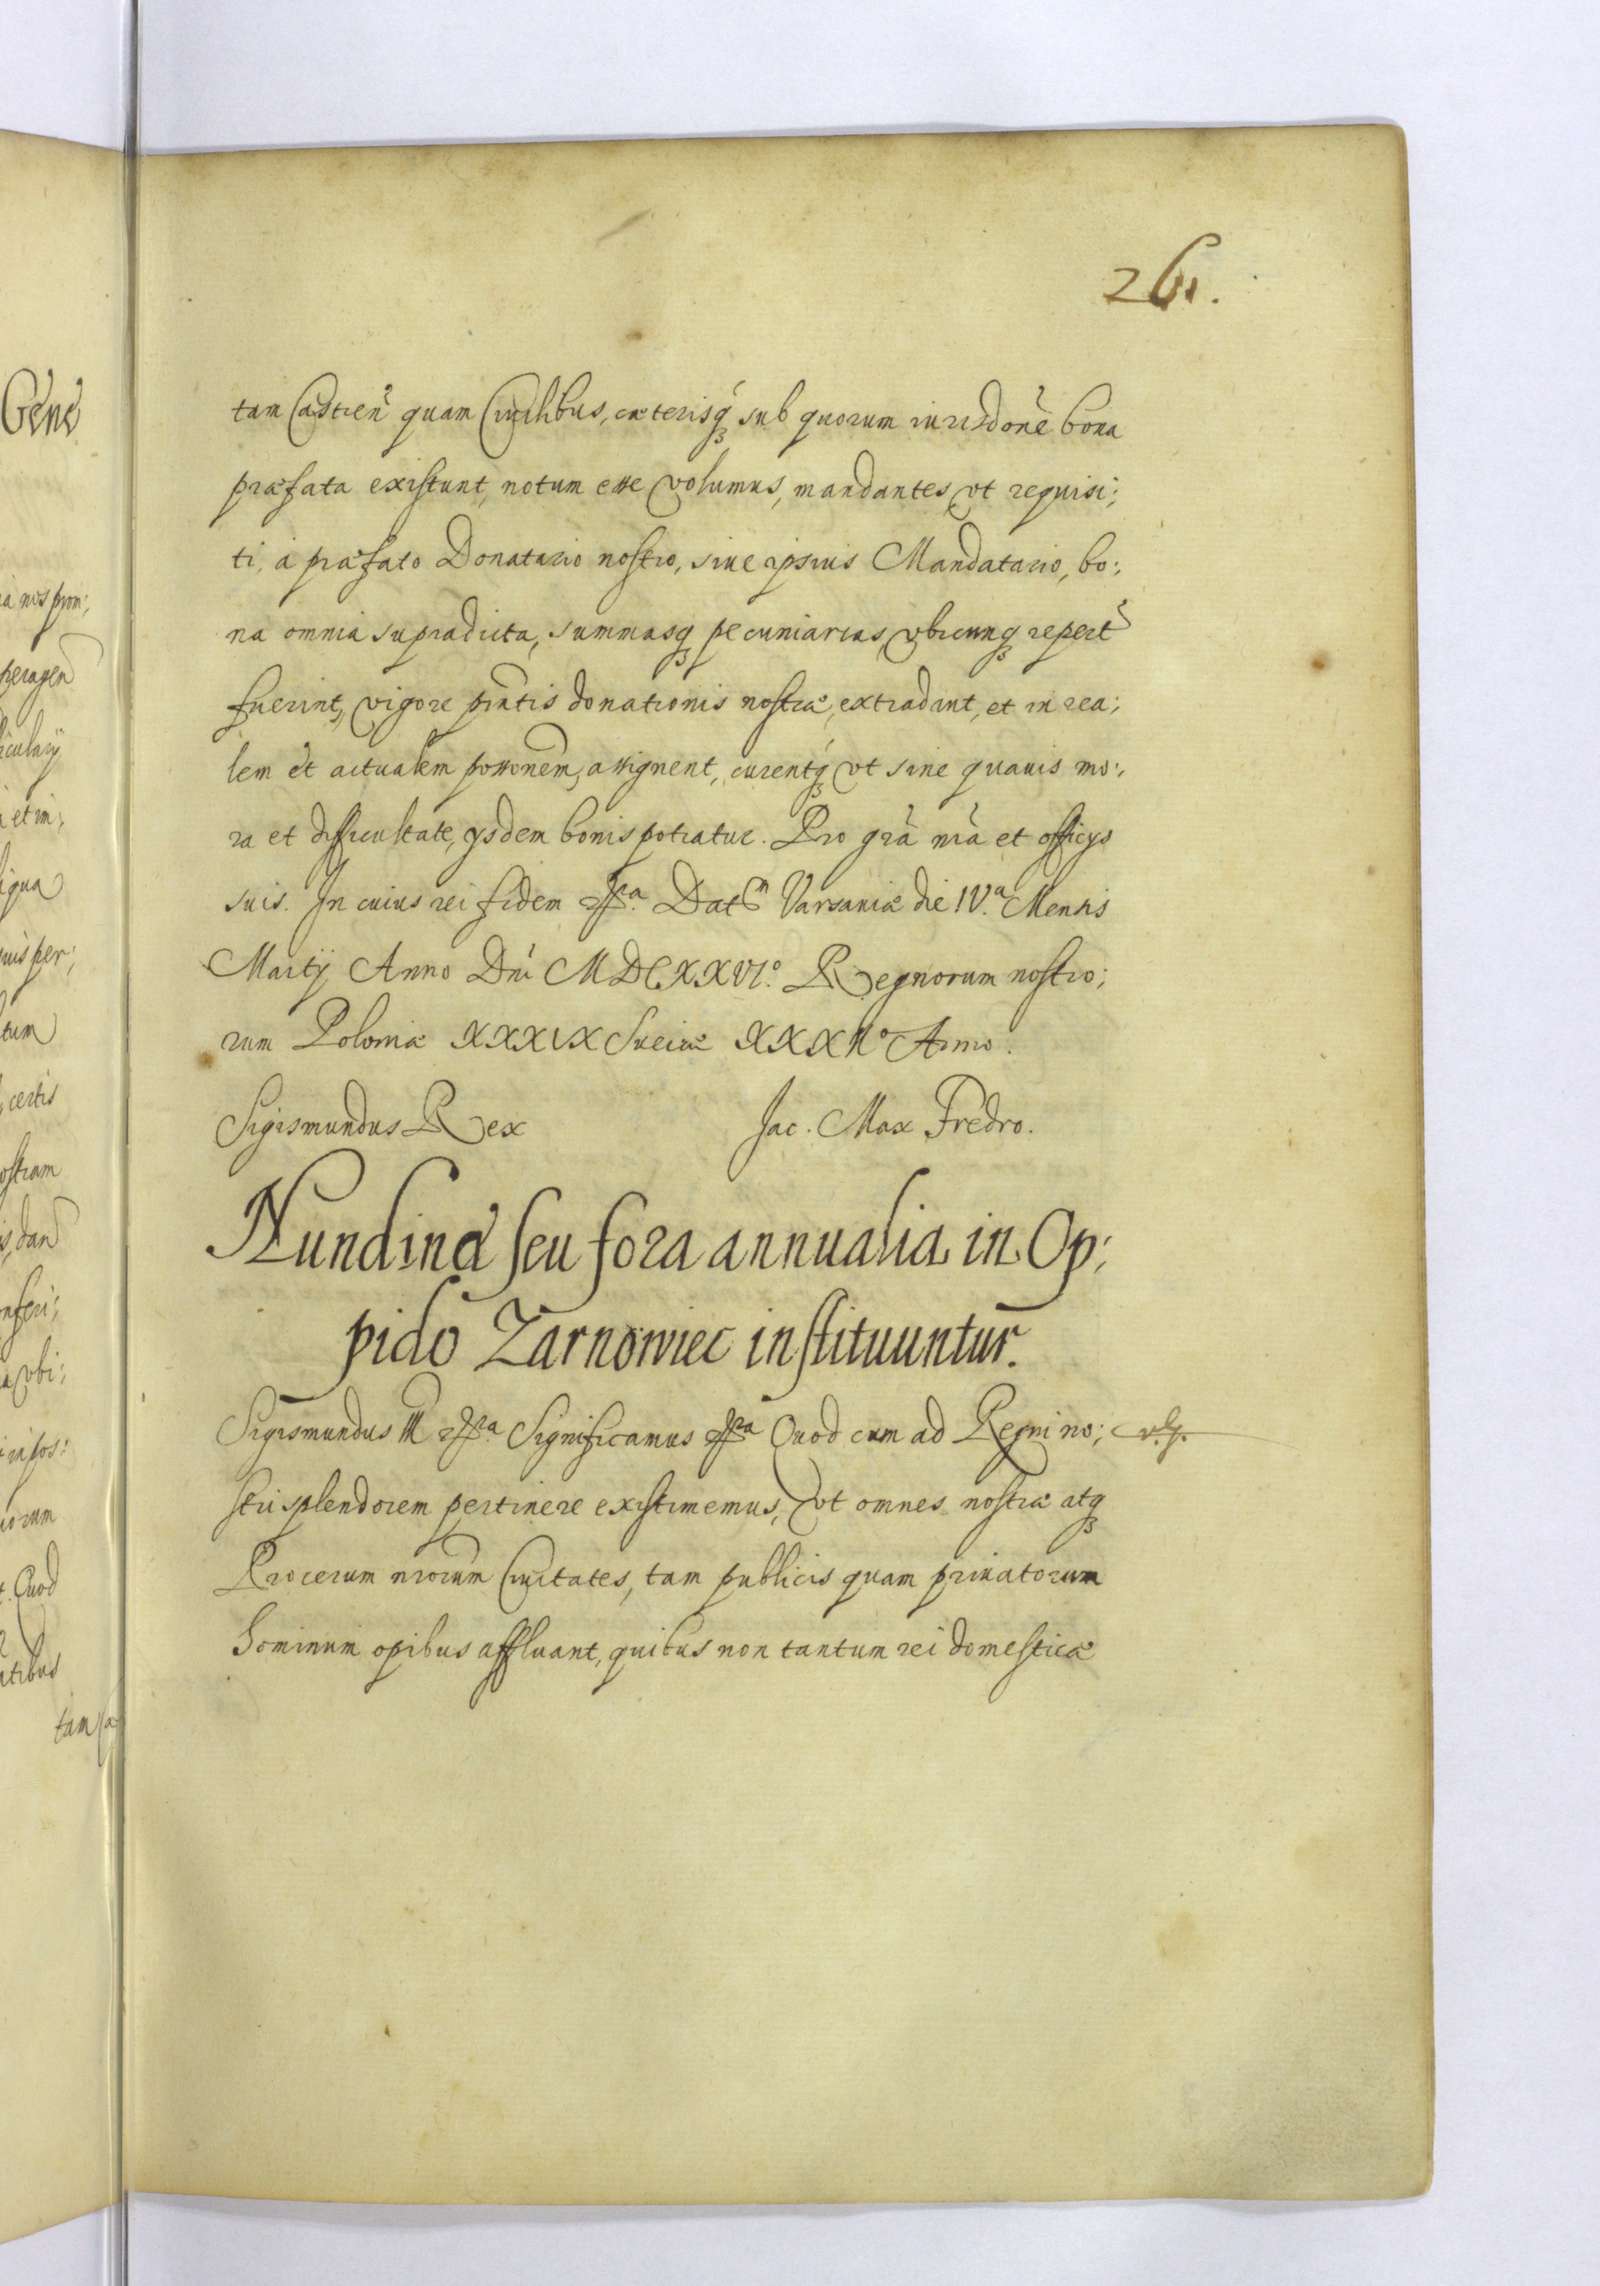 261.
tam Castren̄ quam Ciuilibus, cæterisq́ȝ sub quorum iurisdōnē bona
præfata existunt, notum esse volumus, mandantes, vt requisi;
ti, a præfato Donatario nostro, siue ipsius Mandatario, bo:,
na omnia supradicta, summasqȝ pecuniarias, vbicunqȝ repert
fuerint, vigore pn̄tis donationis nostræ, extradant, et in rea;
lem et actualem possonem, assignent, curentq́ȝ vt sine quauis mo:,
ra et difficultate, ysdem bonis potiatur. Pro grā nrā et officys
suis. In cuius rei fidem Dat Varsauiæ die IV.ª Mensis
Martÿ Anno Dnī MDCXXVI.º Regnorum nostro;
rum Poloniæ XXXIX Sueciæ XXXIIº Anno.
Sigismundus Rex Jac. Max Fredro.
Nundinæ seu fora annualia in Op;
pido Żarnowiec instituuntur.
Sigismundus III Significamus Quod cum ad Regni no;
stri splendorem pertinere existimemus, vt omnes nostræ atqȝ
Procerum nrorum Ciuitates, tam publicis quam priuatorum
hominum opibus affluant, quibus non tantum rei domesticæ
Gene
peragen
et in;
iqua
uis per;
tum
certis
ostram
is, dan
vbi;
orum
Quod
atibus
tam Ca